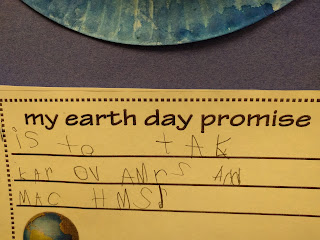 my earth day promise
is to tAk
kAr ov AMrS And
MAC HMS